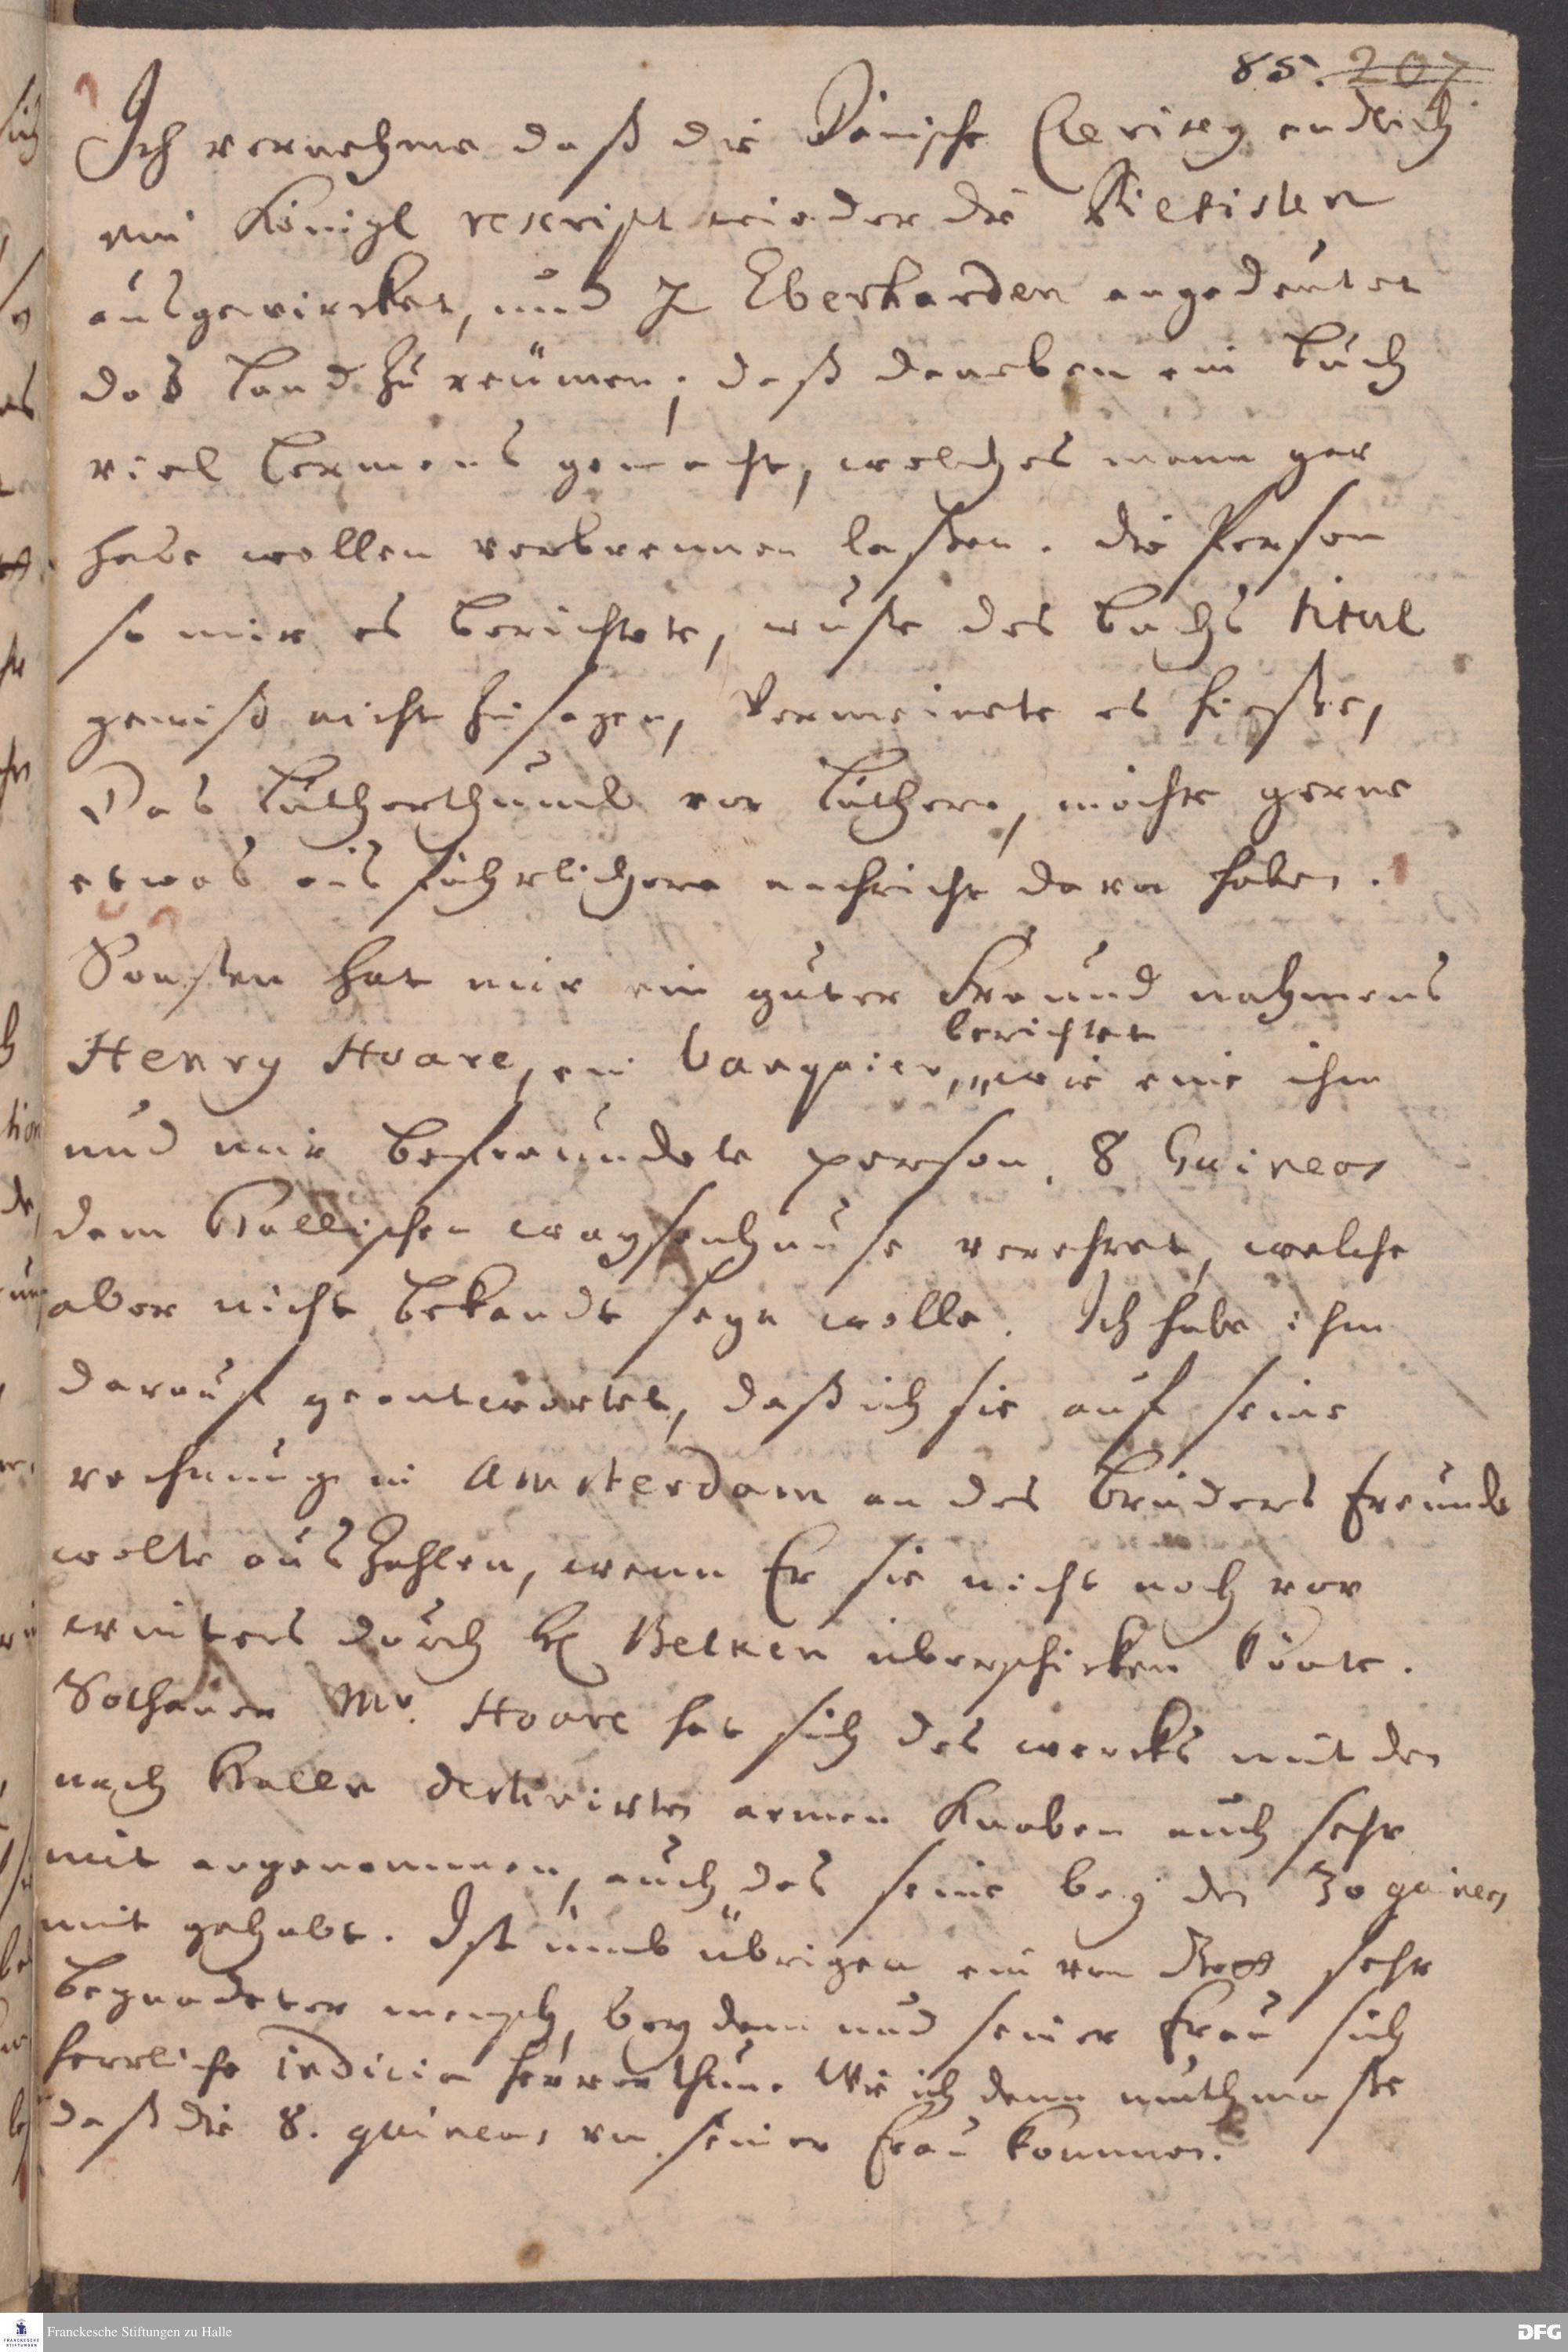 85. 207
Ich vernehme daß die Dänische Clerisey endlich
ein Königl rescript wieder die Pietisten
ausgewircket, und H Eberharden angedeutet
das Land zu reümen; daß daneben ein buch
viel lermens gemacht, welches mann gar
habe wollen verbrennen laßen. Die Person
so mir es berichtete, wuste des buchs titul
gewiß nicht zu sagen, vermeinete es hieße,
Das Lutherthumb vor Luthero, möchte gerne
etwas ausführlichere nachricht davon haben.
Sonsten hat mir ein guter Freund nahmens
berichtet
Henry Hoare, ein banquier, wie eine ihm
und mir befreundete person, 8 Guineas
dem Hallischen waysenhause verehret, welche
aber nicht bekandt seyn wolle. Ich habe ihm
darauf geantwortet, daß ich sie auf seine
rechnung in Amsterdam an des bruders freunde
wolte auszahlen, wenn Er sie nicht noch vor
winters durch H Belken überschicken könte.
Sothaner Mr. Hoare hat sich des wercks mit den
nach Halle destinirten armen Knaben auch sehr
mit angenommen, auch das seine bey den 30 guineas
mit gehabt. Ist umb übrigen ein von Gott sehr
begnadeter mensch, bey dem und seiner Frau sich
herrliche indicia hervorthun. Wie ich denn muthmaße
daß die 8. guineas von seiner Frau kommen.
Franckesche Stiftungen zu Halle
FRANCKESCHE STIFTUNGEN
DFG